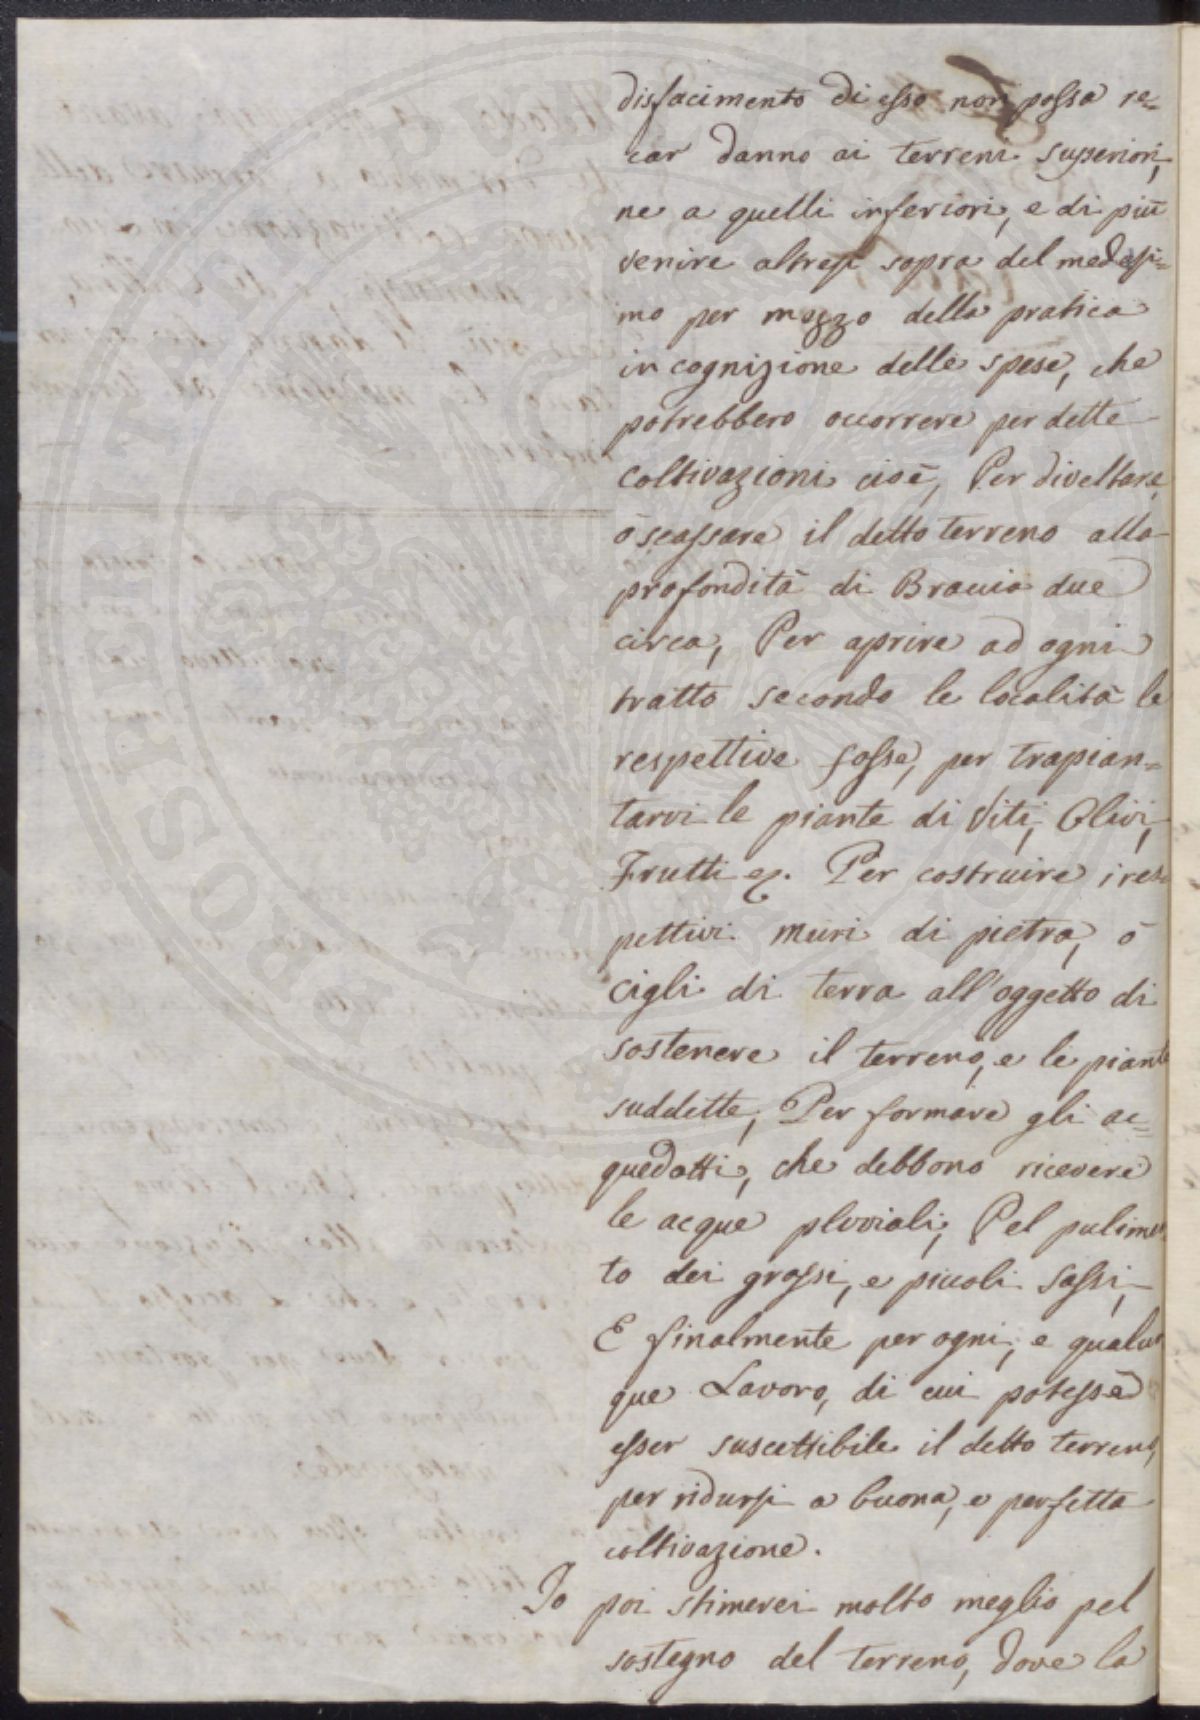 disfacimento di esso non possa re=
car danno ai terreni superiori,
ne a quelli inferiori, e di più
venire altresi sopra del medesi=
mo per mezzo della pratica
in cognizione delle spese, che
potrebbero occorrere per dette
coltivazioni cioè, Per diveltare,
ò scassare il detto terreno alla
profondità di Braccia due
circa, Per aprire ad ogni
tratto secondo le località le
respettive fosse, per trapian=
tarvi le piante di Viti, Olivi,
Frutti ec. Per costruire i res
pettivi muri di pietra, ò
cigli di terra all'oggetto di
sostenere il terreno, e le piante
suddette, Per formare gli ac=
quedotti, che debbono ricevere
le acque pluviali, Pel pulimen
to dei grossi, e piccoli sassi,
E finalmente per ogni, e qualun
que Lavoro, di cui potesse
esser suscettibile il detto terreno,
per ridursi a buona, e perfetta
coltivazione.
Io poi stimerei molto meglio pel
sostegno del terreno, dove la
PROSPERITATI PUBLICAE